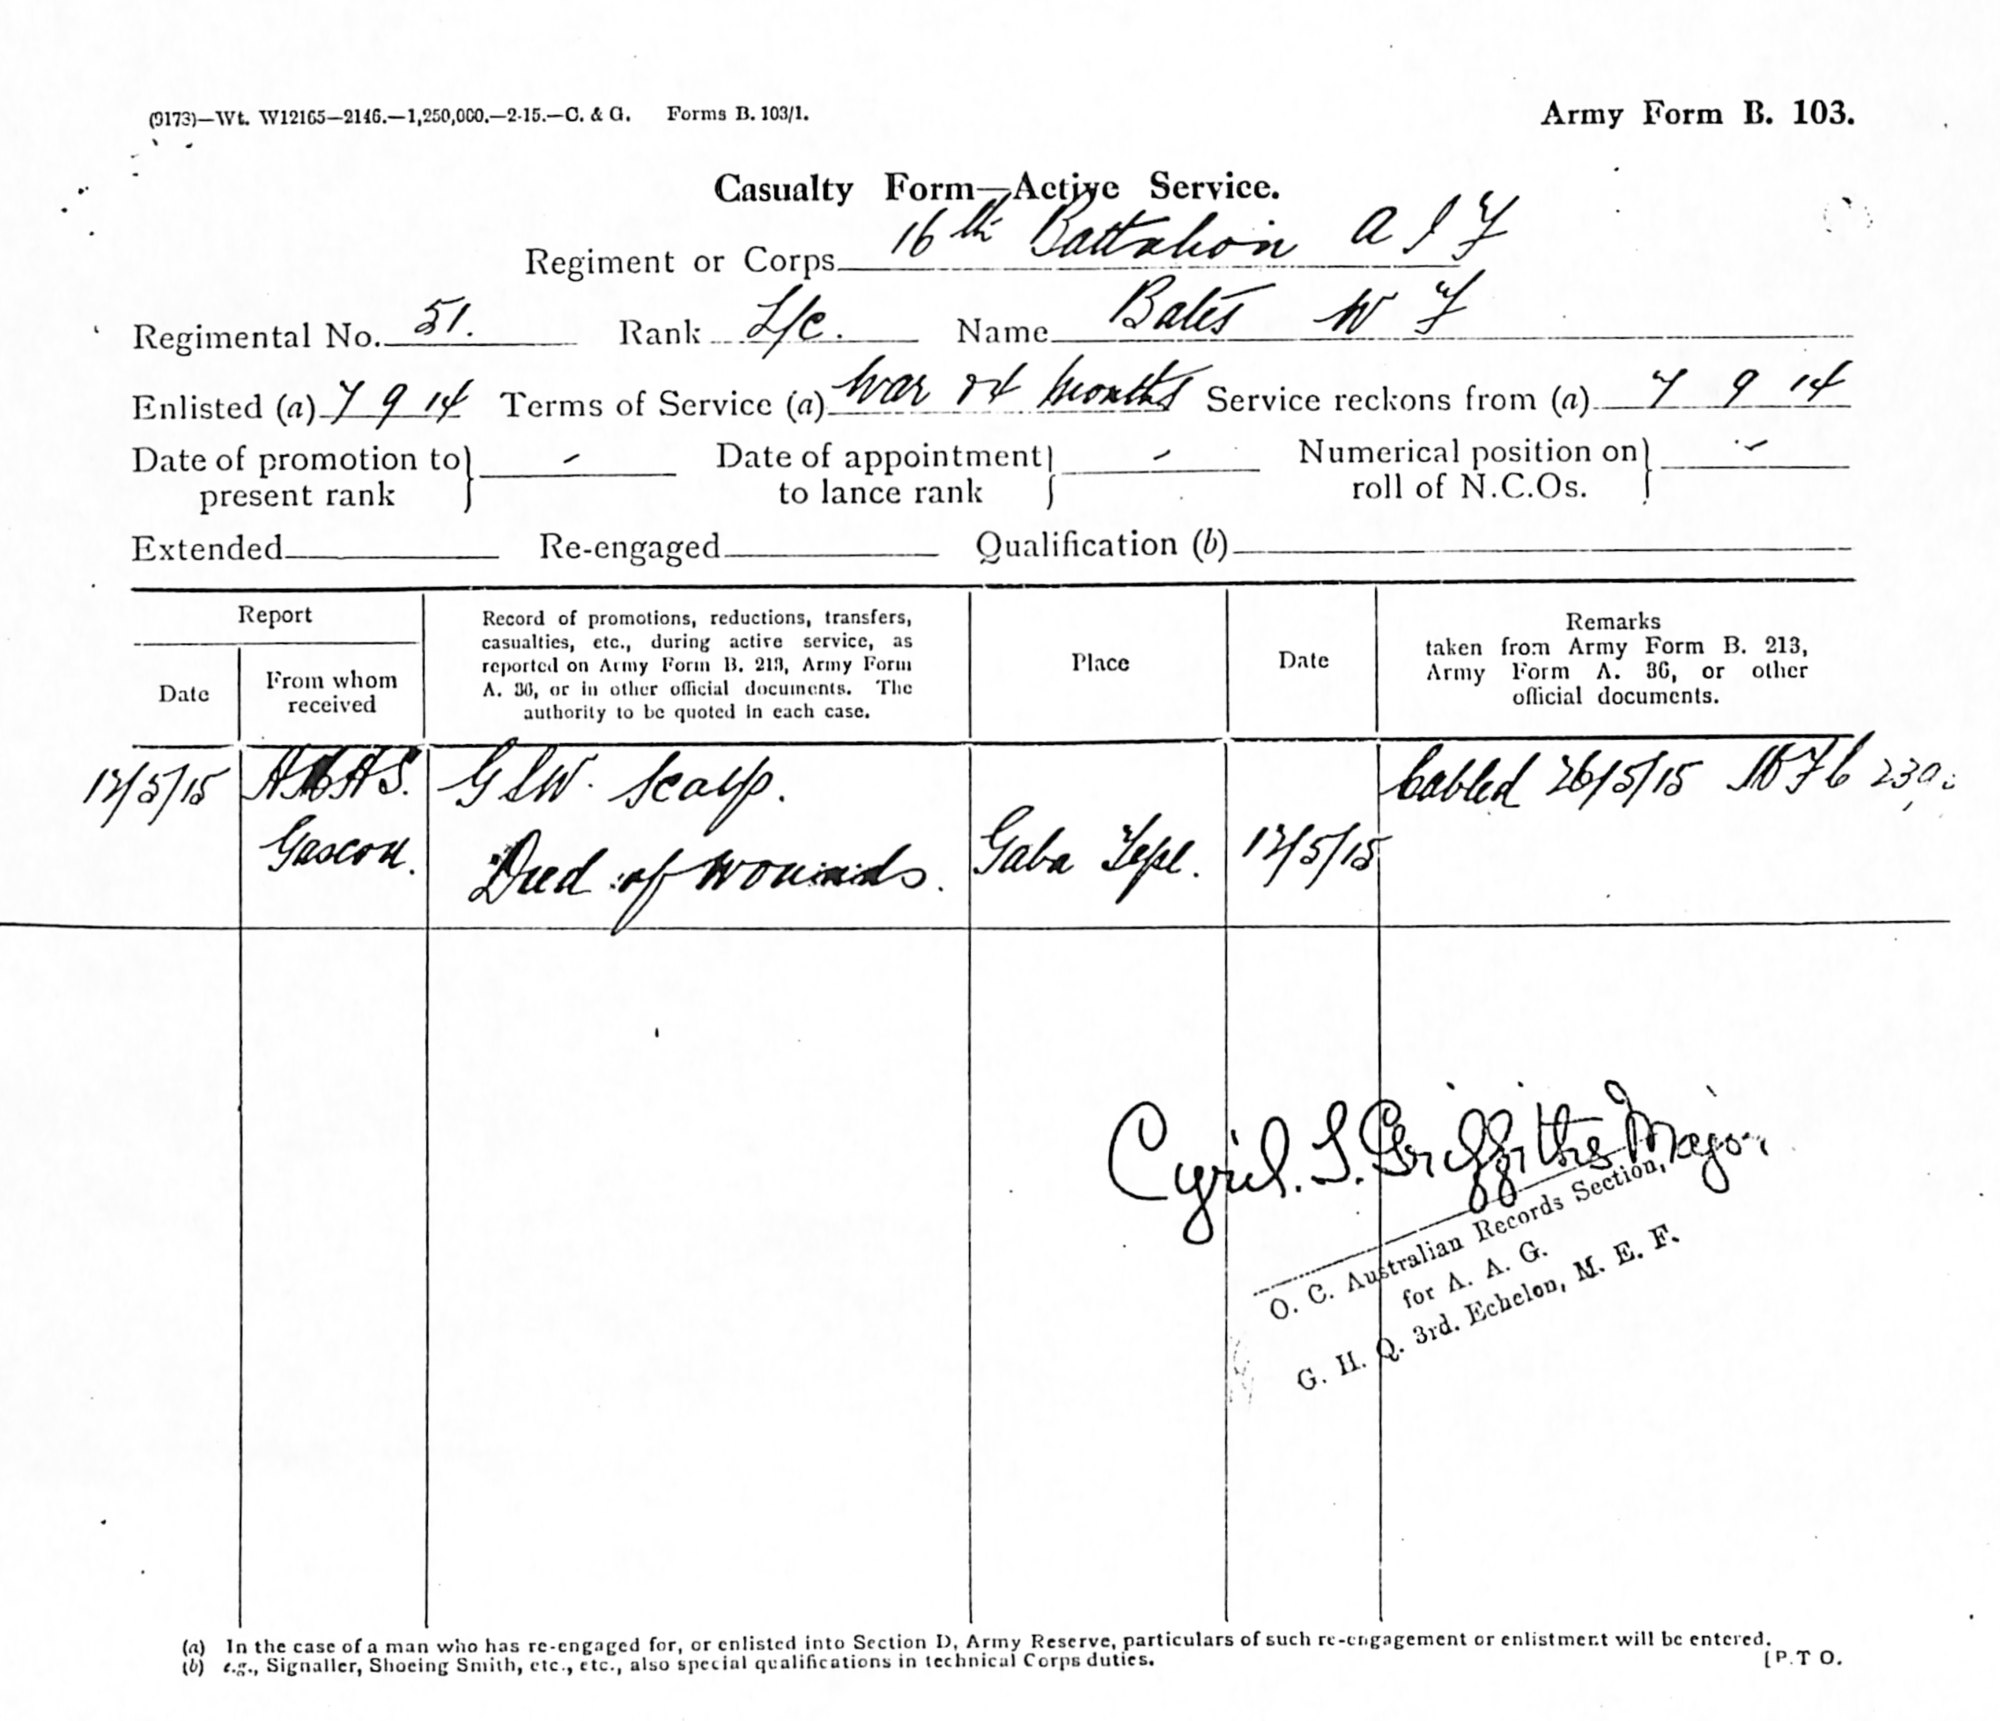 (9173)—Wt. W12165—2146.—1,250,000.—2-15.—C. & G. Forms B. 103/1.
Army Form B. 103.
Casualty Form—Active Service.
Regiment or Corps 16th Battalion A I F
Regimental No. 51. Rank L/c. Name Bates W F
Enlisted (a) 7 9 14 Terms of Service (a) War & 4 months Service reckons from (a) 7 9 14
Date of promotion to present rank } - Date of appointment to lance rank } - Numerical position on roll of N.C.Os. } -
Extended Re-engaged Qualification (b)
Report
Date
From whom received
Record of promotions, reductions, transfers,
casualties, etc., during active service, as
reported on Army Form B. 213, Army Form
A. 36, or in other official documents. The
authority to be quoted in each case.
Place
Date
Remarks
taken from Army Form B. 213,
Army Form A. 36, or other
official documents.
12/5/15 G S W. Scalp. Cabled 26/5/15
Gascon. Died of wounds. Gaba Tepe. 12/5/15
Cyril. S. Griffiths Major
O. C. Australian Records Section,
for A. A. G.
G. H. Q. 3rd. Echelon, M. E. F.
(a) In the case of a man who has re-engaged for, or enlisted into Section D, Army Reserve, particulars of such re-engagement or enlistment will be entered.
(b) e.g., Signaller, Shoeing Smith, etc., etc., also special qualifications in technical Corps duties.
[P.T O.